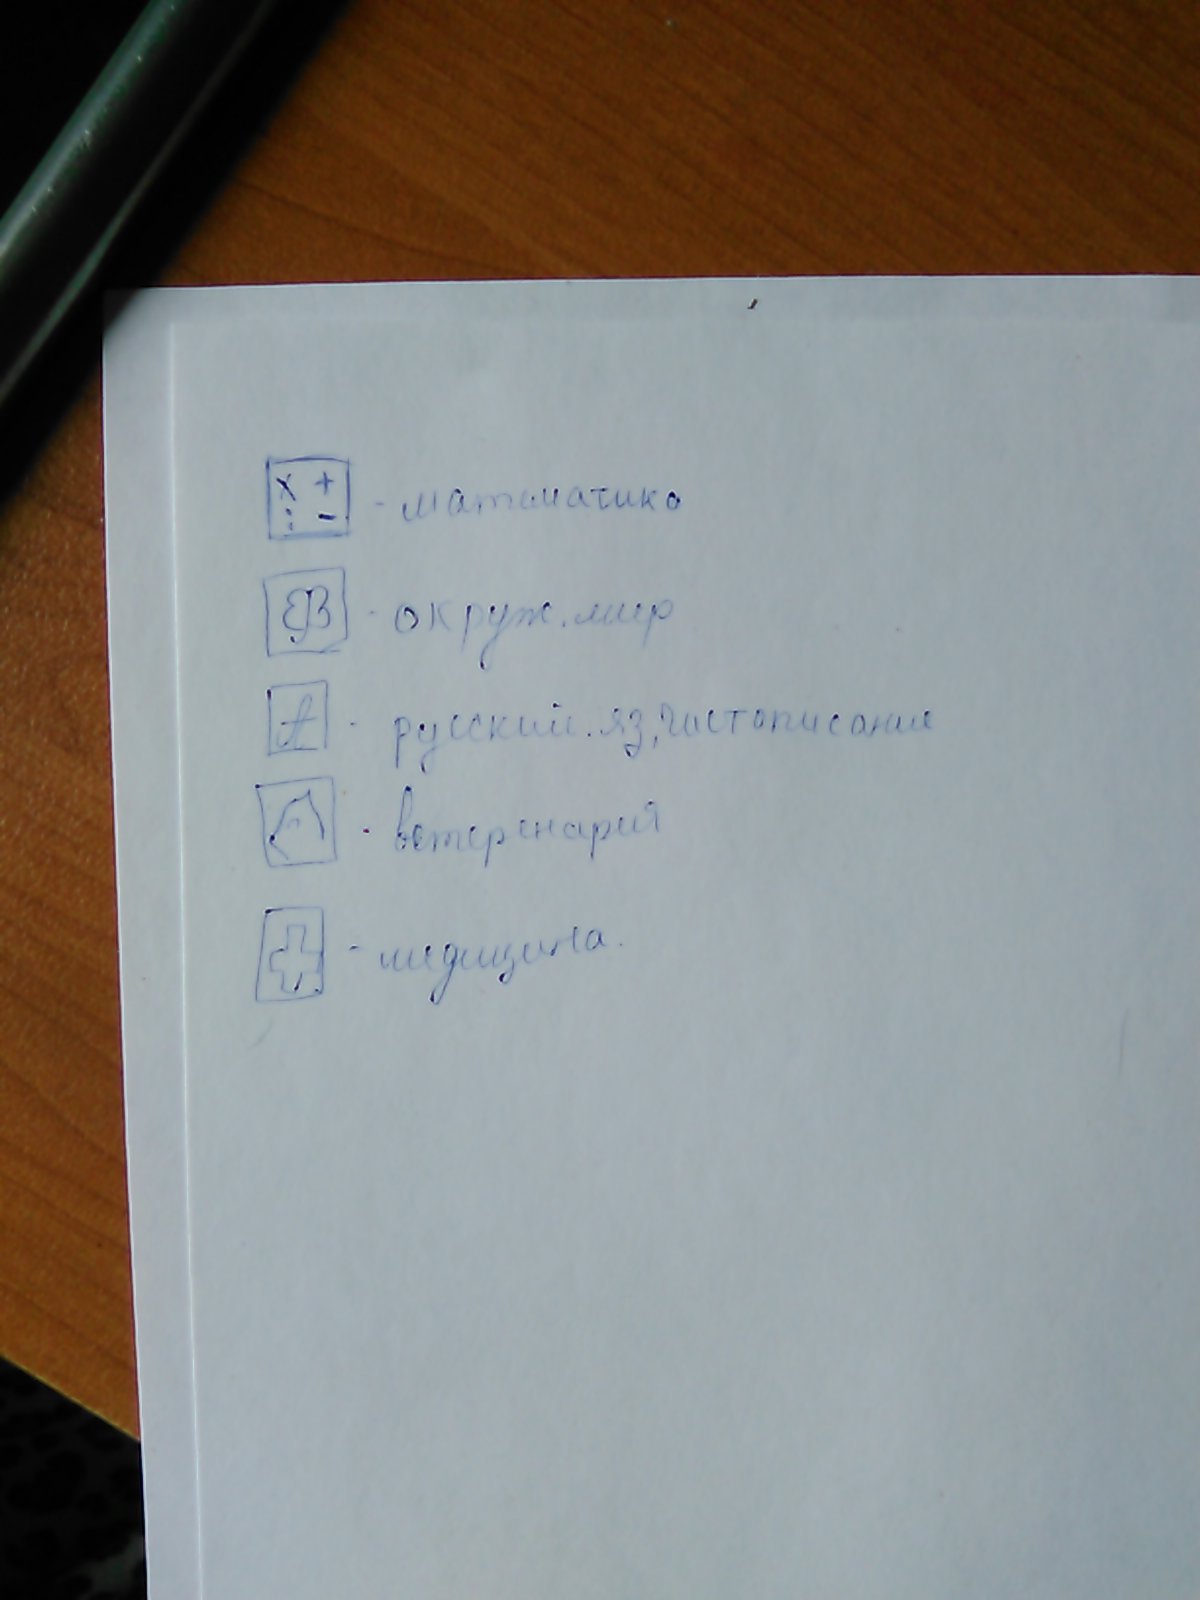 х +
: -
- математика
- окруж. мир
А - русский. яз, чистописание
- ветеренария
- медицина.